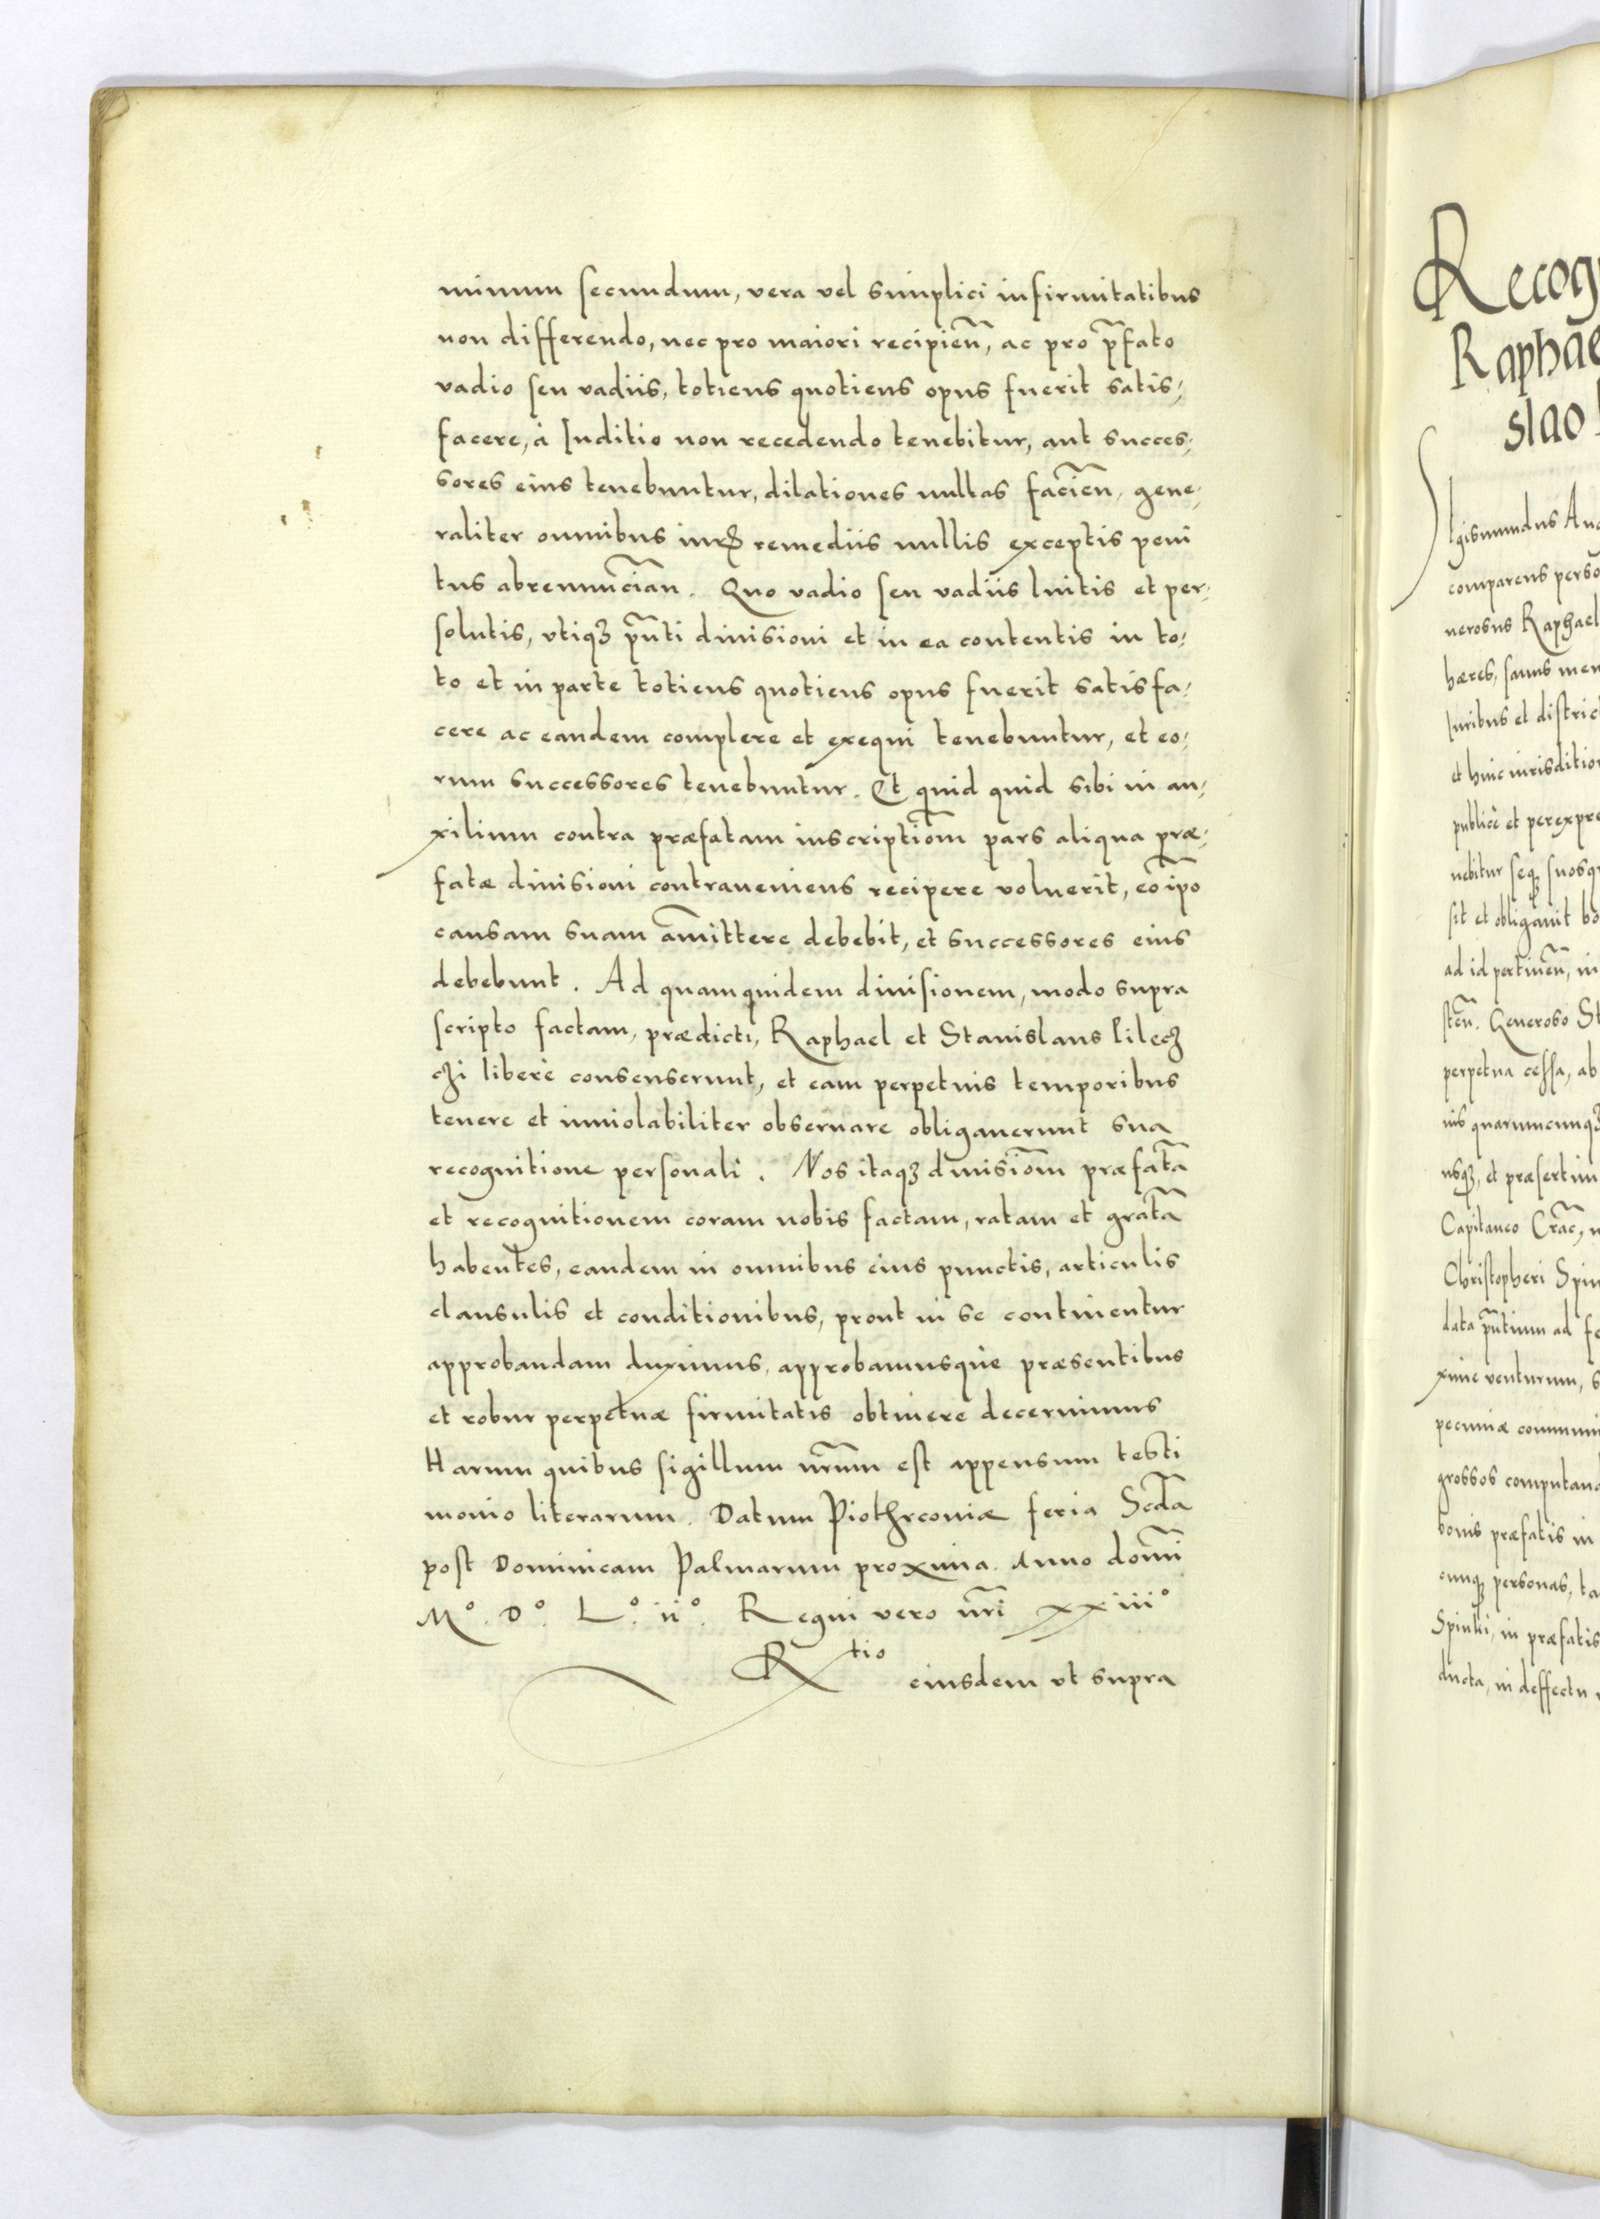 minum secundum, vera vel simplici infirmitatibus
non differendo, nec pro maiori recipien̄, ac pro p̄fato
vadio seu vadiis, totiens quotiens opus fuerit satis,
facere, à Iuditio non recedendo tenebitur, aut succes,
sores eius tenebuntur, dilationes nullas facien̄, gene,
raliter omnibus iurꝭ remediis nullis exceptis peni
tus abrenuncian̄. Quo vadio seu vadiis luitis et per,
solutis, vtiqꝫ pn̄ti diuisioni et in ea contentis in to,
to et in parte totiens quotiens opus fuerit satisfa,
cere ac eandem complere et exequi tenebuntur, et eo,
rum successores tenebuntur. Et quid quid sibi in au,
xilium contra præfatam inscriptiom̄ pars aliqua præ,
fatæ diuisioni contraueniens recipere voluerit, eō ipo
causam suam am̄ittere debebit, et successores eius
debebunt. Ad quamquidem diuisionem, modo supra
scripto factam, prædicti, Raphael et Stanislaus Pilecꝫ
cꝫi liberè consenserunt, et eam perpetuis temporibus
tenere et inuiolabiliter obseruare obligauerunt sua
recognitione personali. Nos itaqꝫ diuisiom̄ præfatā
et recognitionem coram nobis factam, ratam et gratā
habentes, eandem in omnibus eius punctis, articulis
clausulis et conditionibus, prout in se continentur
approbandam duximus, approbamusque præsentibus
et robur perpetuæ firmitatis obtinere decernimus
Harum quibus sigillum nr̄um est appensum testi
monio literarum. Datum Piothrcouiæ feria Scd̄a
post Dominicam Palmarum proxima. Anno domī
M°. D°. L°. ii°. Regni vero nr̄i xxiii°
Rtio
eiusdem vt supra
Recog
Raphae
slao
Igismundus Au
comparens perso
nerosus Raphael
hæres, sanus men
Iuribus et distric
et huic iurisditio
publicè et per expre
nebitur seqꝫ suosq
sit et obligauit bo
ad id pertinen̄, in
sten̄. Generoso St
perpetua cessa, ab
uis quarumcunqꝫ
usqꝫ, et præsertim
Capitaneo Crac̄,
Christopheri Spin
data pn̄tium ad fe
xime venturum, s
pecuniæ communi
grossos computan
bonis præfatis in
cunqꝫ personas, ta
Spinki, in præfatis
ducta, in deffectu